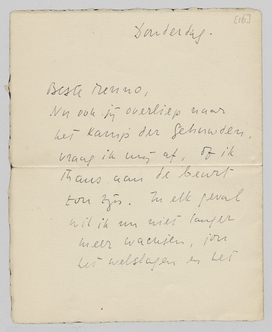 [16]
Donderdag.
Beste Menno,
Nu ook jij overliep naar
het kamp der gehuwden,
vraag ik mij af, of ik
thans aan de beurt
zou zijn. In elk geval
wil ik nu niet langer
meer wachten, jou
het welslagen en het